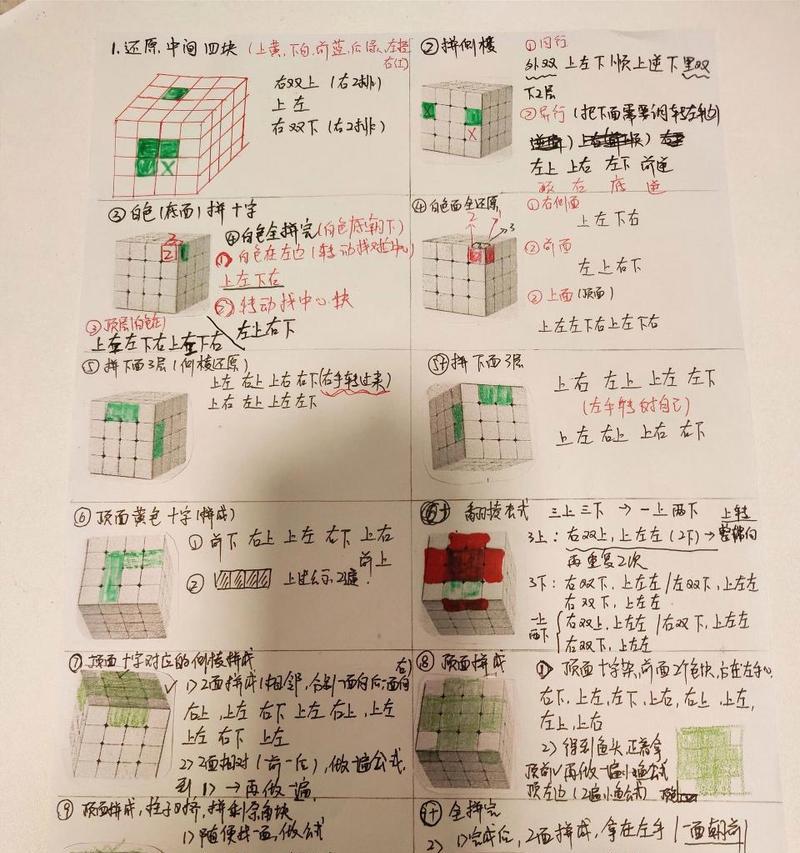 1.还原中间四块 (上黄,下白,前蓝,后绿,左橙
右红)
右双上 (右2排)
上左
右双下 (右2排)
② 拼侧棱
①同行
外双 上左下顺上逆下里双
下2层
②异行 (把下面需要调转左转)
左上 上右 左下 前逆
底 逆
③白色(底面)拼十字
④白色全拼完(白色底朝下)
①白色在左边(转动找对中心)
上左下右
②转动找中心块
左上右下
③顶层(白色)
上左左下右上左下右
④白色面全还原
①右侧面
上左下右
②前面
左上右下
②上面(顶面)
上左左下右上左下右
⑤ 拼下面3层(侧棱还原)
上左 右上 上右 右下(右手转过来)
上右 左上 上左 左下
5+拼下面3层
上右 左上 上左 左下
(左手转对自己)
上左 右上 上右 右下
⑥ 顶面黄色十字(拼成)
① 前下 右上 上左 右下 上右
前上
②
上述公式2遍.
翻棱公式 三上三下 → 一上两下
3上: 右双上,上左左(2下)→整体向
上转
再重复2次
3下: 右双下,上左左/左双下,上左左
右双下,上左左
一上
两下
右双上,上左左/右双下,上左左
右双下,上左左
⑦ 顶面十字对应的侧棱拼成
1) 2面拼成(相邻,合别一面向后一面向
右)
右上,上左 右下 上左 右上,上左
上左 右下 上左
2) 2面相对(前一后),做一遍公式
到 1) → 再做一遍
⑧ 顶面拼成
1) 顶面十字架,前面2个色块,右在左手心
右下,上左,左下,上右,右上,上左,
左上,上右
2) 得到鱼头,正着拿
顶前✓再做一遍小鱼公式
顶左边(2遍小鱼公式)
⑨ 顶面拼成,拼剩余角块
1) 随便找一面,做公式
6+ 全拼完
1)完成后,2面拼成,拿在左手(一面朝前)
2)